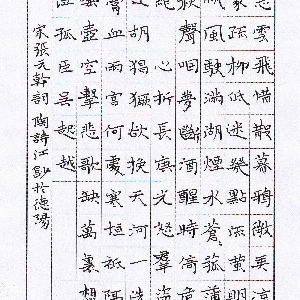 急雲飛惊散暮鴉微弄涼
家疏柳低迷幾點流螢明
風駛滿湖煙水蒼菰蒲
秋聲咽夢斷酒醒時倚危
絕 心折長庚光怒羣盜
逆胡猖獗欲挽天河一洗
膏血兩宮何處塞垣祇隔
壺空擊悲歌缺萬里想
泣孤臣吳越越
宋張元幹詞 陶詩江鈔於德陽